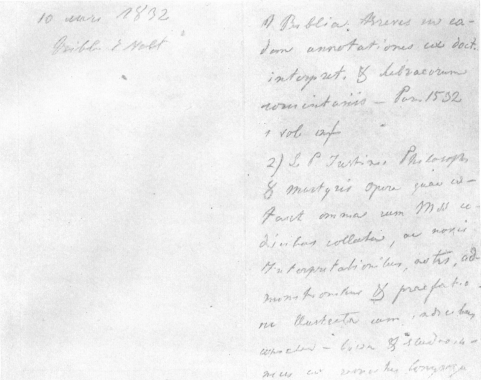 10 mars 1832
1. Biblia. Breves in ea-
dem annotationes ex doct.
interpret. & hebraeorum
comentariis — Par. 1532
1 vol inf
2) S. P. Justini Philosoph
& martyris opera quae ex-
tant omnia cum Mss co-
dicibus collata, ac novis
Interpretationibus, notis, ad-
monitionibus & praefatio-
ne illustrata cum indicibus